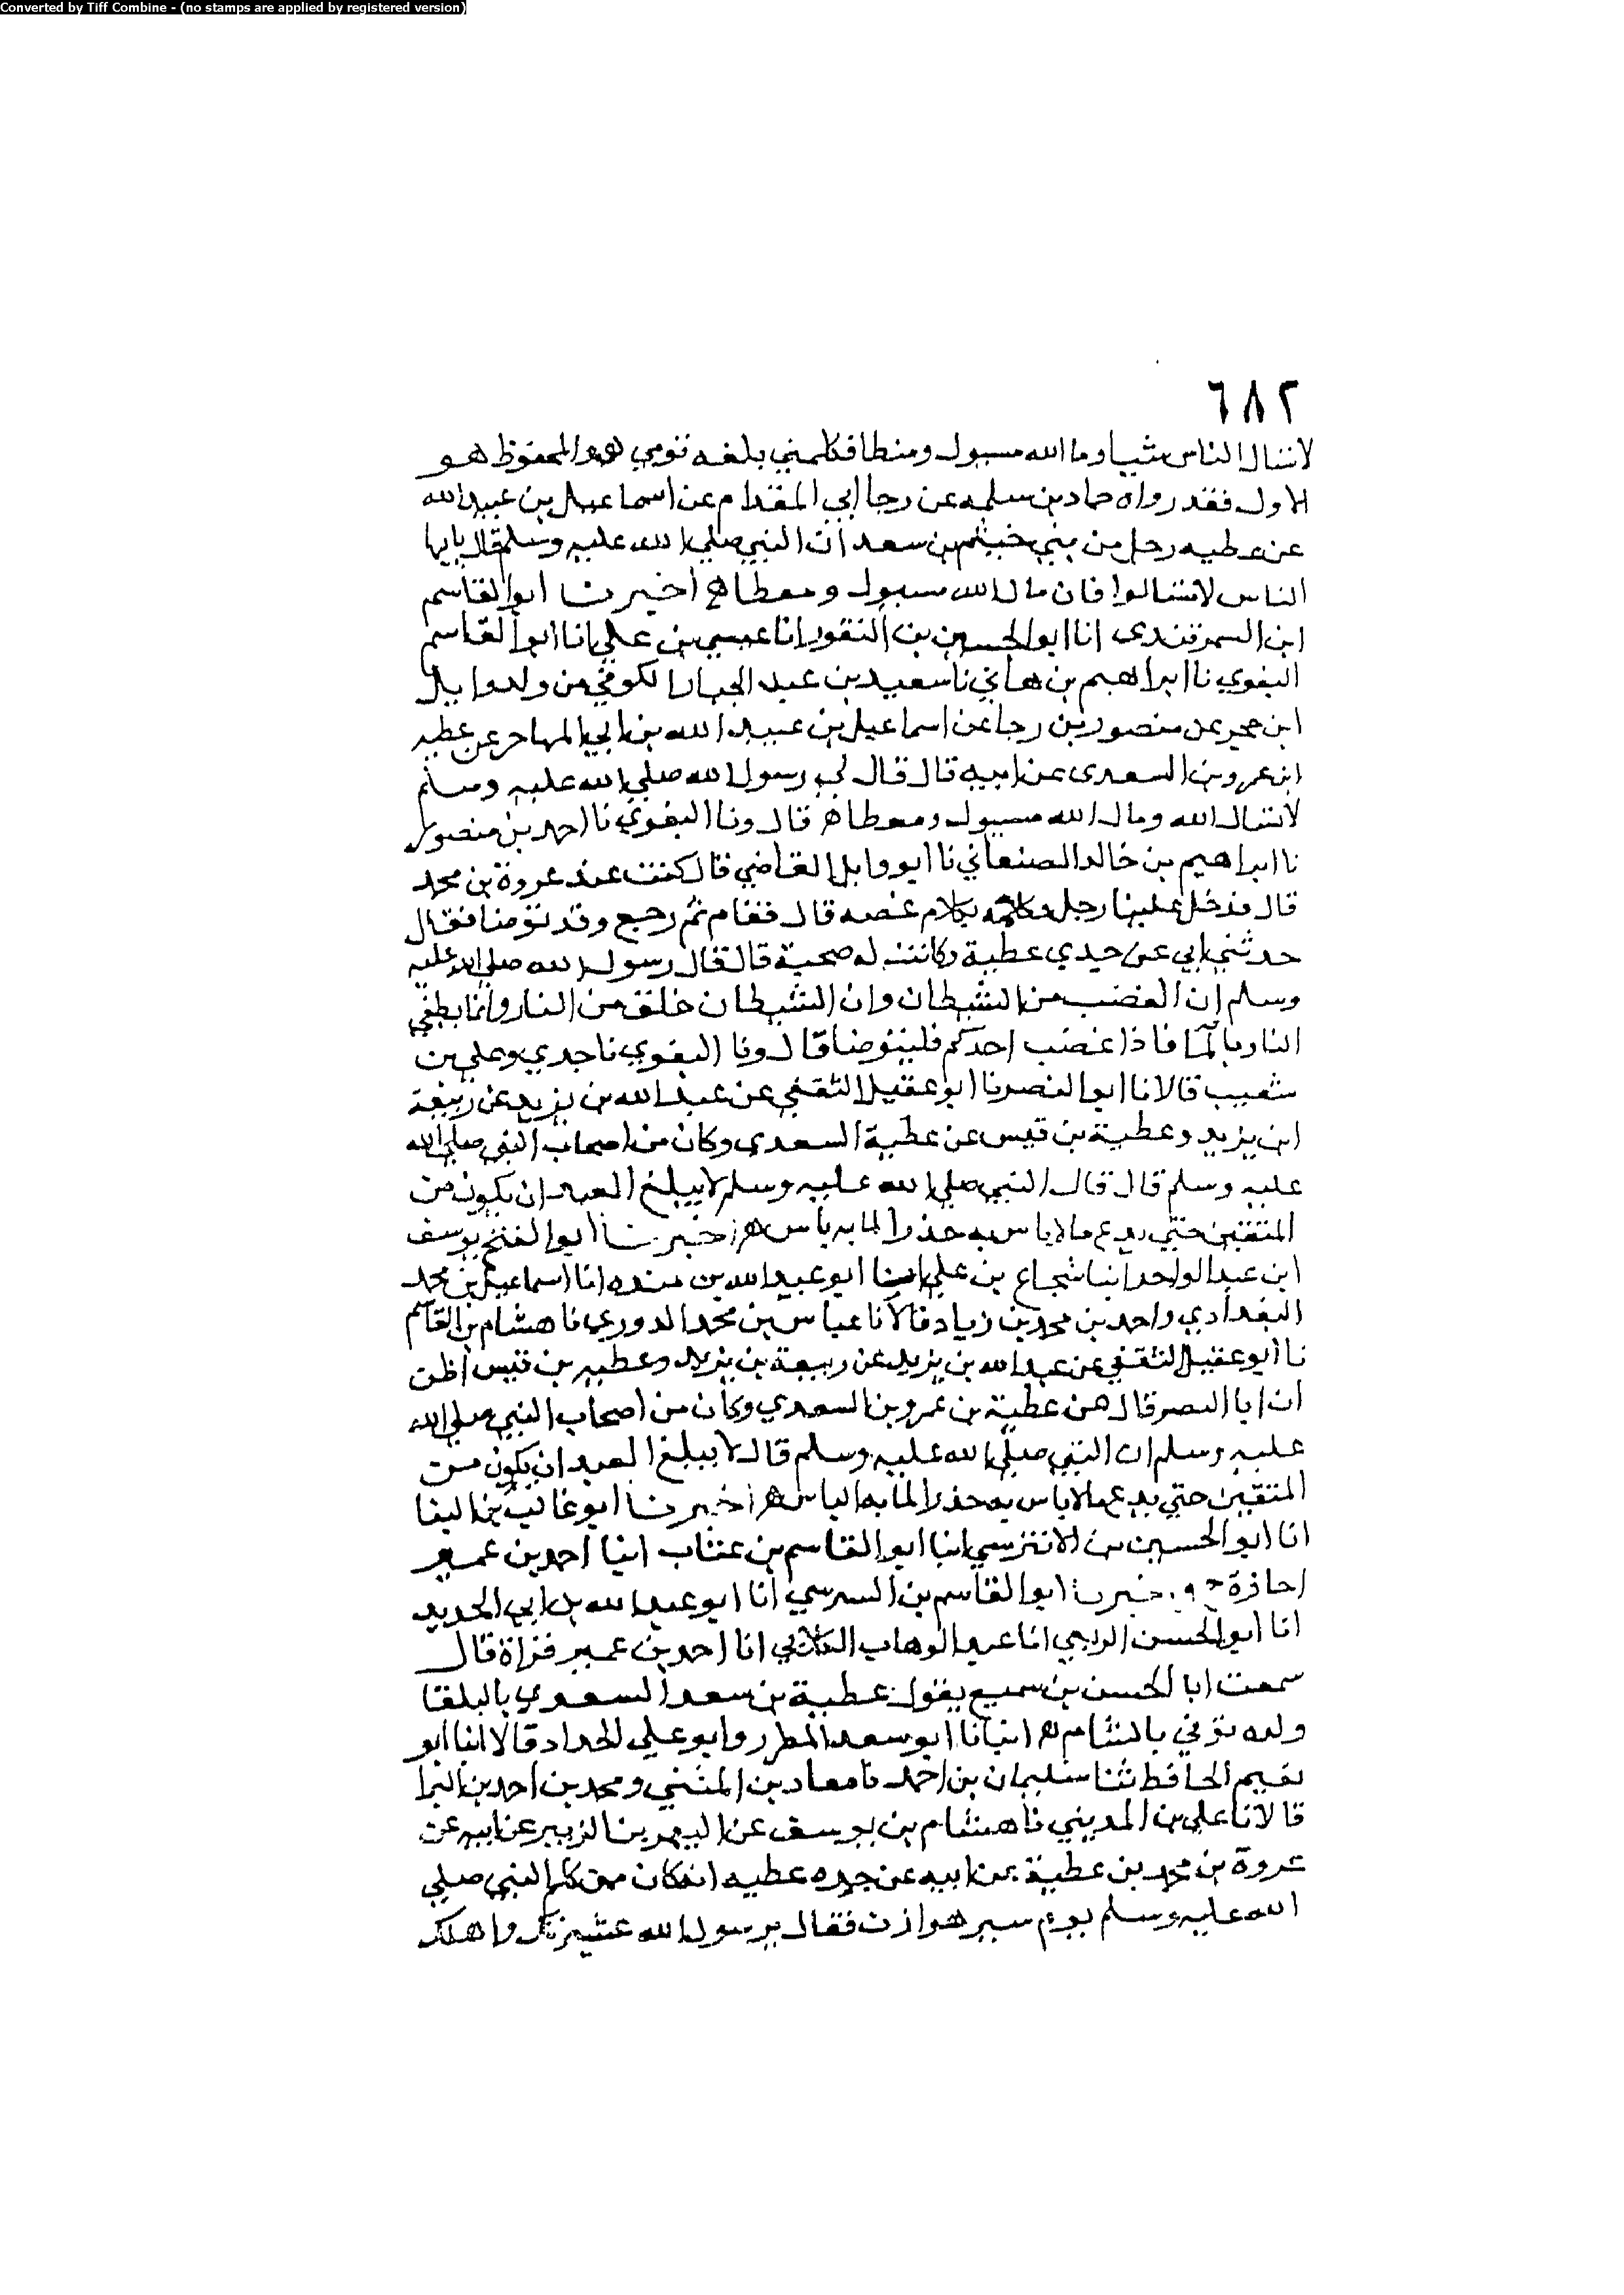 Converted by Tiff Combine - (no stamps are applied by registered version)
٦٨٢
لا تسال الناس شيا وما الله مسبول ومنطا فكلمني بلغه قومي هه والمحفوظ هو
الاول فقد رواه حماد بن سلمه عن رجا ابي المقدام عن اسماعيل بن عبيد الله
عن عطيه رجل من بني خيثم بن سعد ان النبي صلي الله عليه وسلم قال يايها
الناس لا تسالوا فان مال الله مسبول ومعطا ه اخبرنا ابو القاسم
ابن السمرقندى انا ابو الحسين بن النقور انا عيسي بن علي انا ابو القاسم
البغوي نا ابراهيم بن هاني نا سعيد بن عبد الجبار الكوفي من ولد وايل
ابن حجر عن منصور بن رجا عن اسماعيل بن عبيد الله بن ابي المهاجر عن عطيه
ابن عمرو بن السعدى عن ابيه قال قال لي رسول الله صلي الله عليه وسلم
لا تسال الله ومال الله مسبول ومعطا ه قال ونا البغوي نا احمد بن منصور
نا ابراهيم بن خالد الصنعاني نا ابو وابل القاضي قال كنت عند عروة بن محمد
قال فدخل علينا رجل فكلمه بكلام غضبه قال فقام ثم رجع وقد توضا فقال
حدثني ابي عن جدي عطية وكانت له صحبة قال قال رسول الله صلي الله عليه
وسلم ان الغضب من الشيطان وان الشيطان خلق من النار وانما يطفي
النار بالما فاذا غضب احدكم فليتوضا قال ونا البغوي نا جدي وعلي بن
شعيب قالا نا ابو النصر نا ابو عقيل الثقفي عن عبد الله بن يزيد عن ربيعة
ابن يزيد وعطية بن قيس عن عطية السعدى وكان من اصحاب النبي صلي الله
عليه وسلم قال قال النبي صلي الله عليه وسلم لا يبلغ العبد ان يكون من
المتقين حتي يدع ما لا باس به حذرا لما به باس ه اخبرنا ابو الفتح يوسف
ابن عبد الواحد انبا شجاع بن علي انبا ابو عبد الله بن منده انا اسماعيل بن محمد
البغدادي واحمد بن محمد بن زياد قالا نا عباس بن محمد الدوري نا هشام بن القاسم
نا ابو عقيل الثقفي عن عبد الله بن يزيد عن ربيعة بن يزيد وعطيه بن قيس اظن
ان ابا النصر قال هن عطية بن عمرو بن السعدي وكان من اصحاب النبي صلي الله
عليه وسلم ان النبي صلي الله عليه وسلم قال لا يبلغ العبد ان يكون من
المتقين حتي يدع ما لا باس به حذرا لما به الباس ه اخبرنا ابو غالب بن البنا
انا ابو الحسين بن الانترسي انبا ابو القاسم بن عتاب انبا احمد بن عمير
اجازة ح واخبرنا ابو القاسم بن السرسي انا ابو عبد الله بن ابي الحديد
انا ابو الحسن الربعي انا عبد الوهاب الكلابي انا احمد بن عمير قراة قال
سمعت ابا الحسن بن سميع يقول عطية بن سعد السعدي بالبلقا
ولده توفي بالشام ه انبانا ابو سعد المطرز وابو علي الحداد قالا انا ابو
نعيم الحافظ ثنا سليمان بن احمد نا معاد بن المثني ومحمد بن احمد بن البرا
قالا نا علي بن المديني نا هشام بن يوسف عن اليهمر بن الزبير عن ابيه عن
عروة بن محمد بن عطية عن ابيه عن جده عطيه انه كان ممن كلم النبي صلي
الله عليه وسلم يوم سبي هوازن فقال يرسول الله عشيرتك واهلك